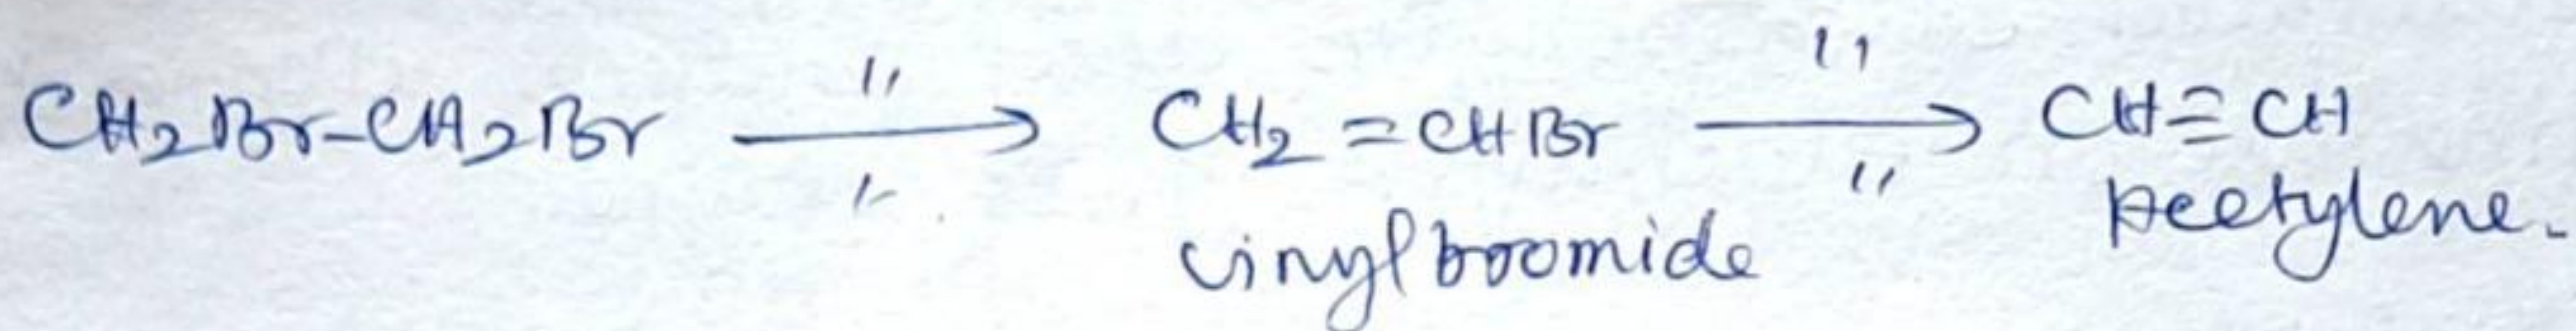 " "
CH₂Br-CH₂Br ⟶ CH₂=CHBr ⟶ CH≡CH
" "
vinylbromide Acetylene.